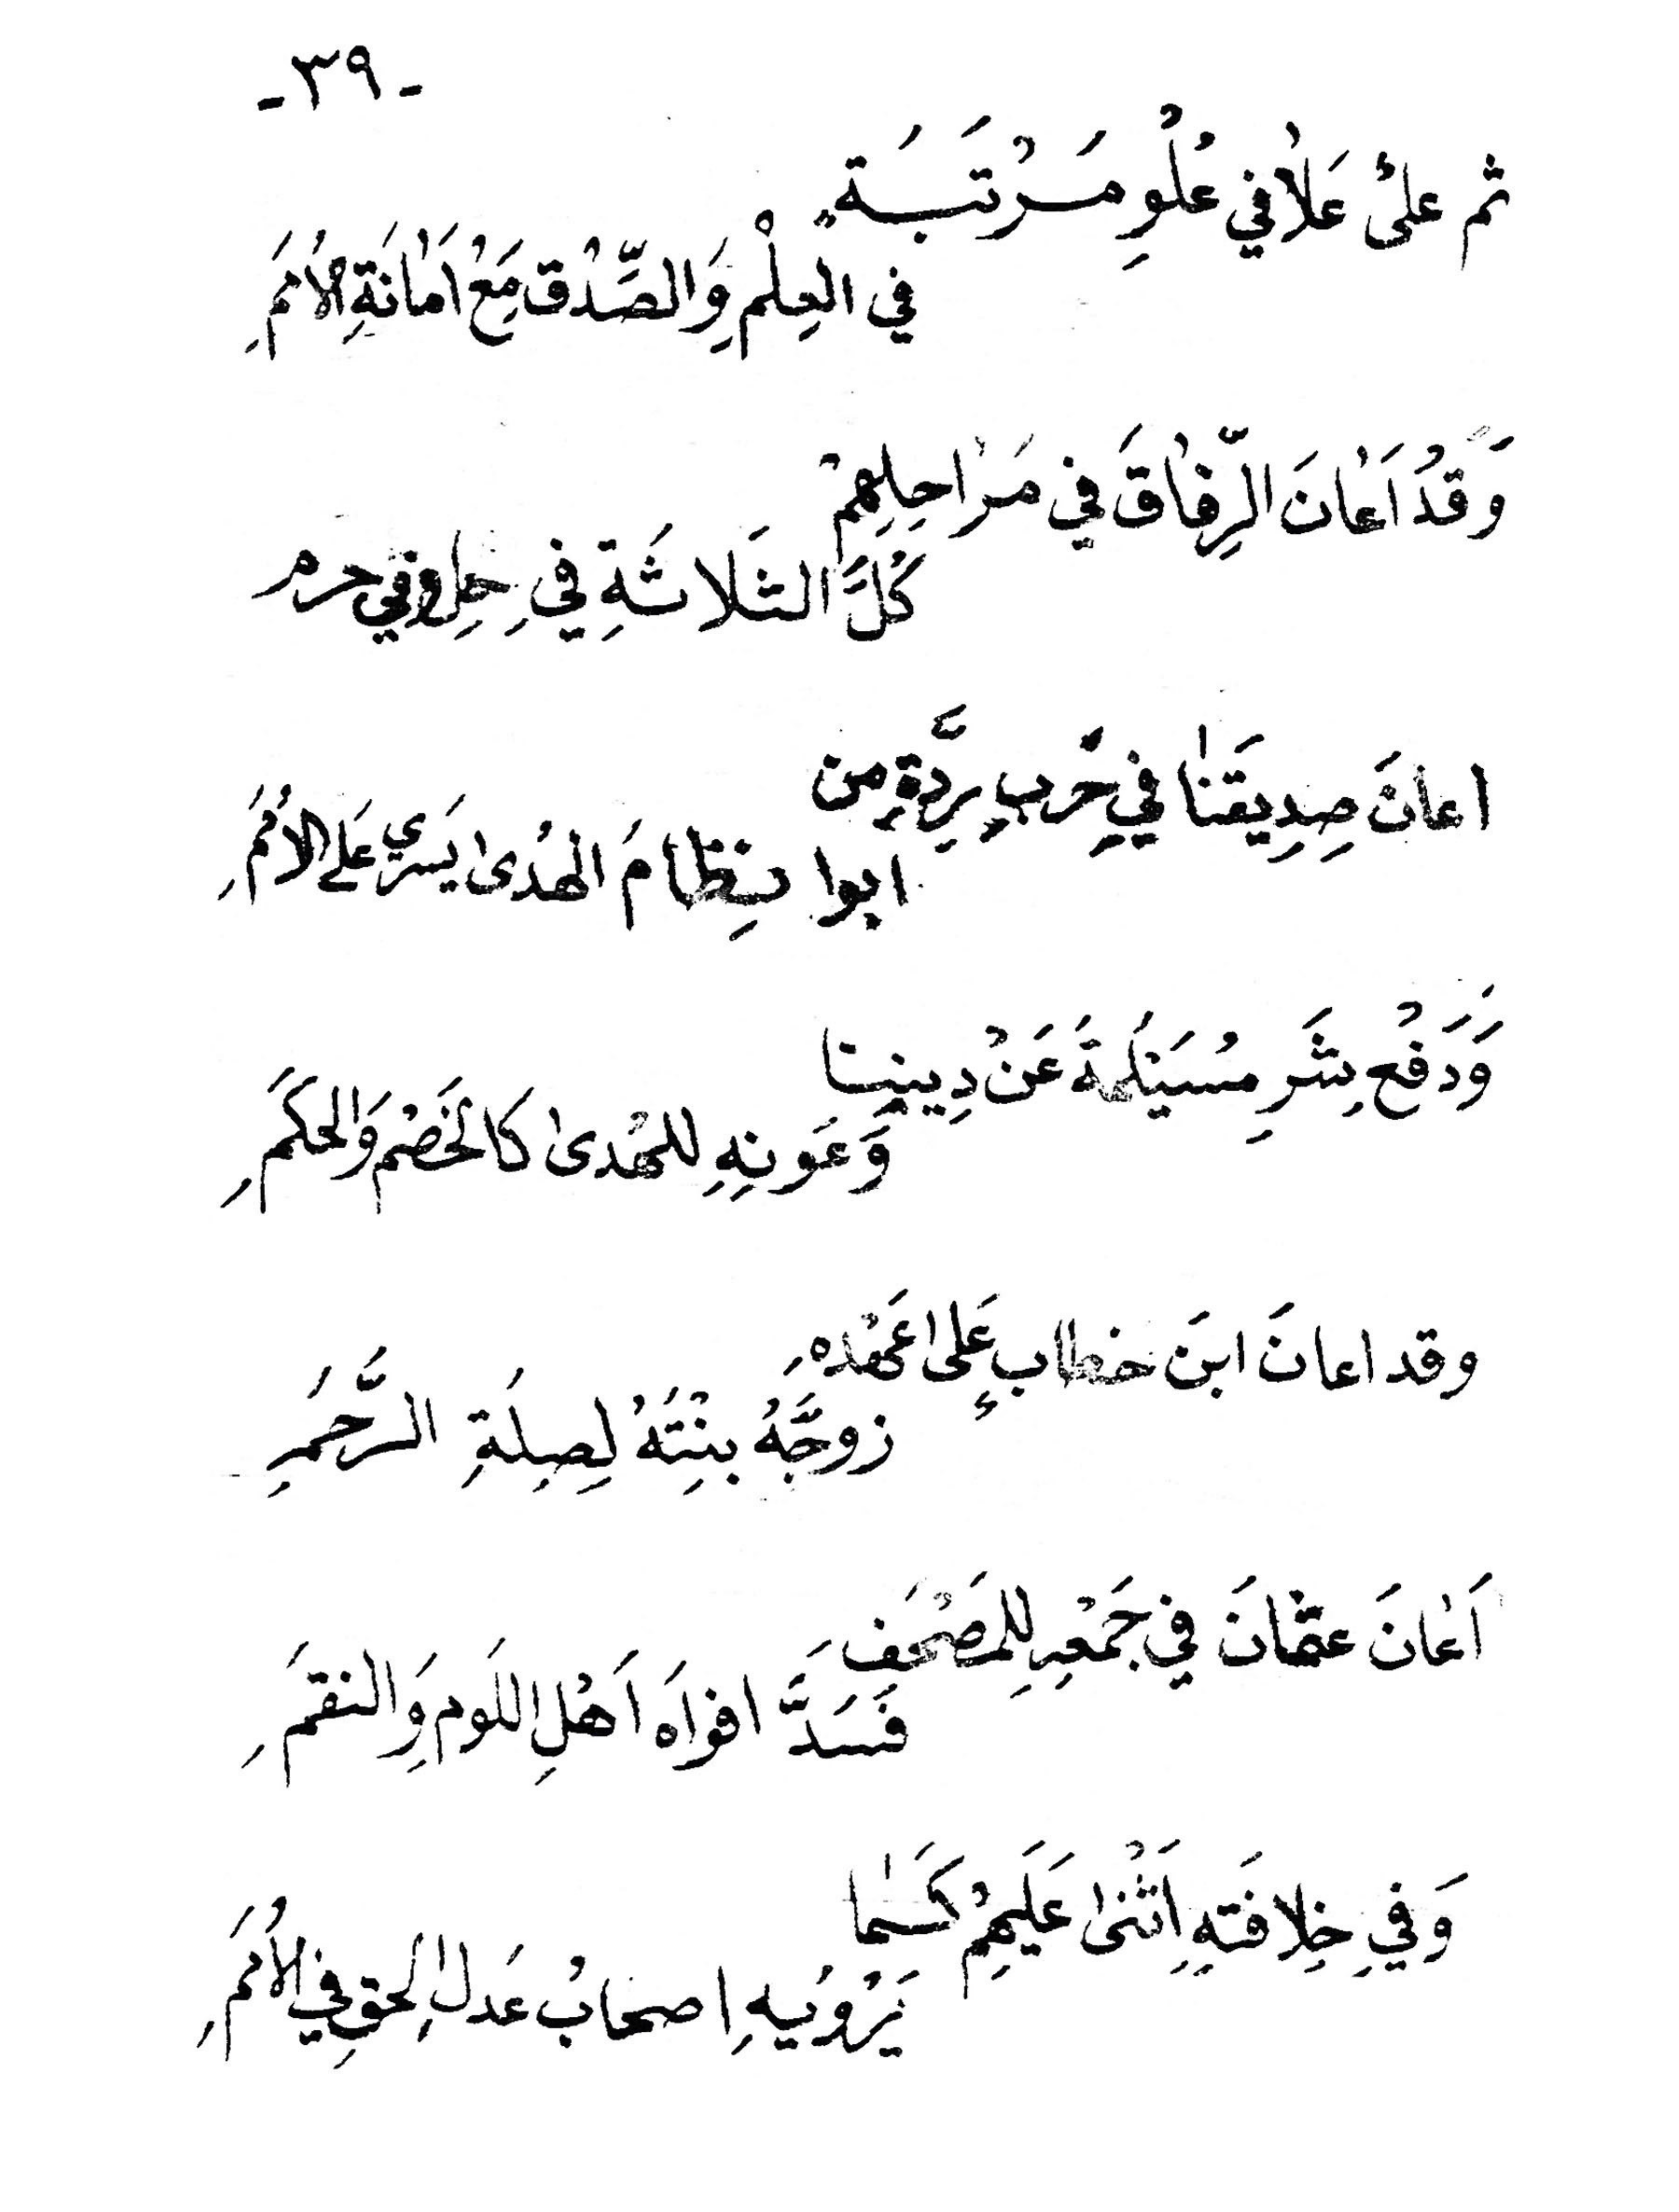 -٣٩-
ثم علىْ عَلاٰ في عُلْوِ مَرْتَبَةٍ
في العِلْمِ وَالصِّدْقِ مَعْ اَمٰانَةِ الاُمَمِ
وَقَدْ اَعٰانَ الرِّفٰاقَ في مَرٰاحِلِهِمْ
كُلَّ الثَلاثَةِ فيِ حِلِ وفي حرم
اعانَ صِدِيقَنٰا فيِ حَربِ رِدَّةِ من
ابوا نِظامَ الهُدىٰ يَسْري عَلى الاُمَمِ
وَدَفْعِ شَرِ مُسَيْلَمَةَ عَنْ دِيننِا
وَعَونِهِ للهُدىٰ كَالخَصْمِ وَالحَكَمِ
وقد اعانَ ابنَ خطابٍ عَلى اعَهْدهِ
زوجَّهُ بنِتَهُ لِصِلَةِ الرَّحَمِ
اَعٰانَ عثمٰانَ في جَمْعِهِ لِلمَصْحَفِ
فَسَدَّ افواَه اَهْلِ اللَومِ وَالنقمَِ
وَفيِ خِلافَتهِ اَثْنىٰ عَلَيهِمْ كَمٰا
يَرْوُيهِ اصحابُ عَدلِ الحقِ فيِ الاُمَمِ